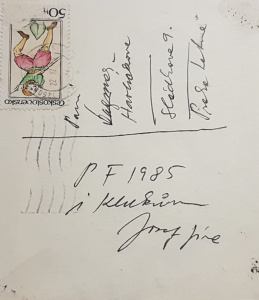 50 h
Československo
Paní
Dagmar
Hochova
Sládkova 9
Praha Letná
P F 1985
i klukům
Josef Jíra